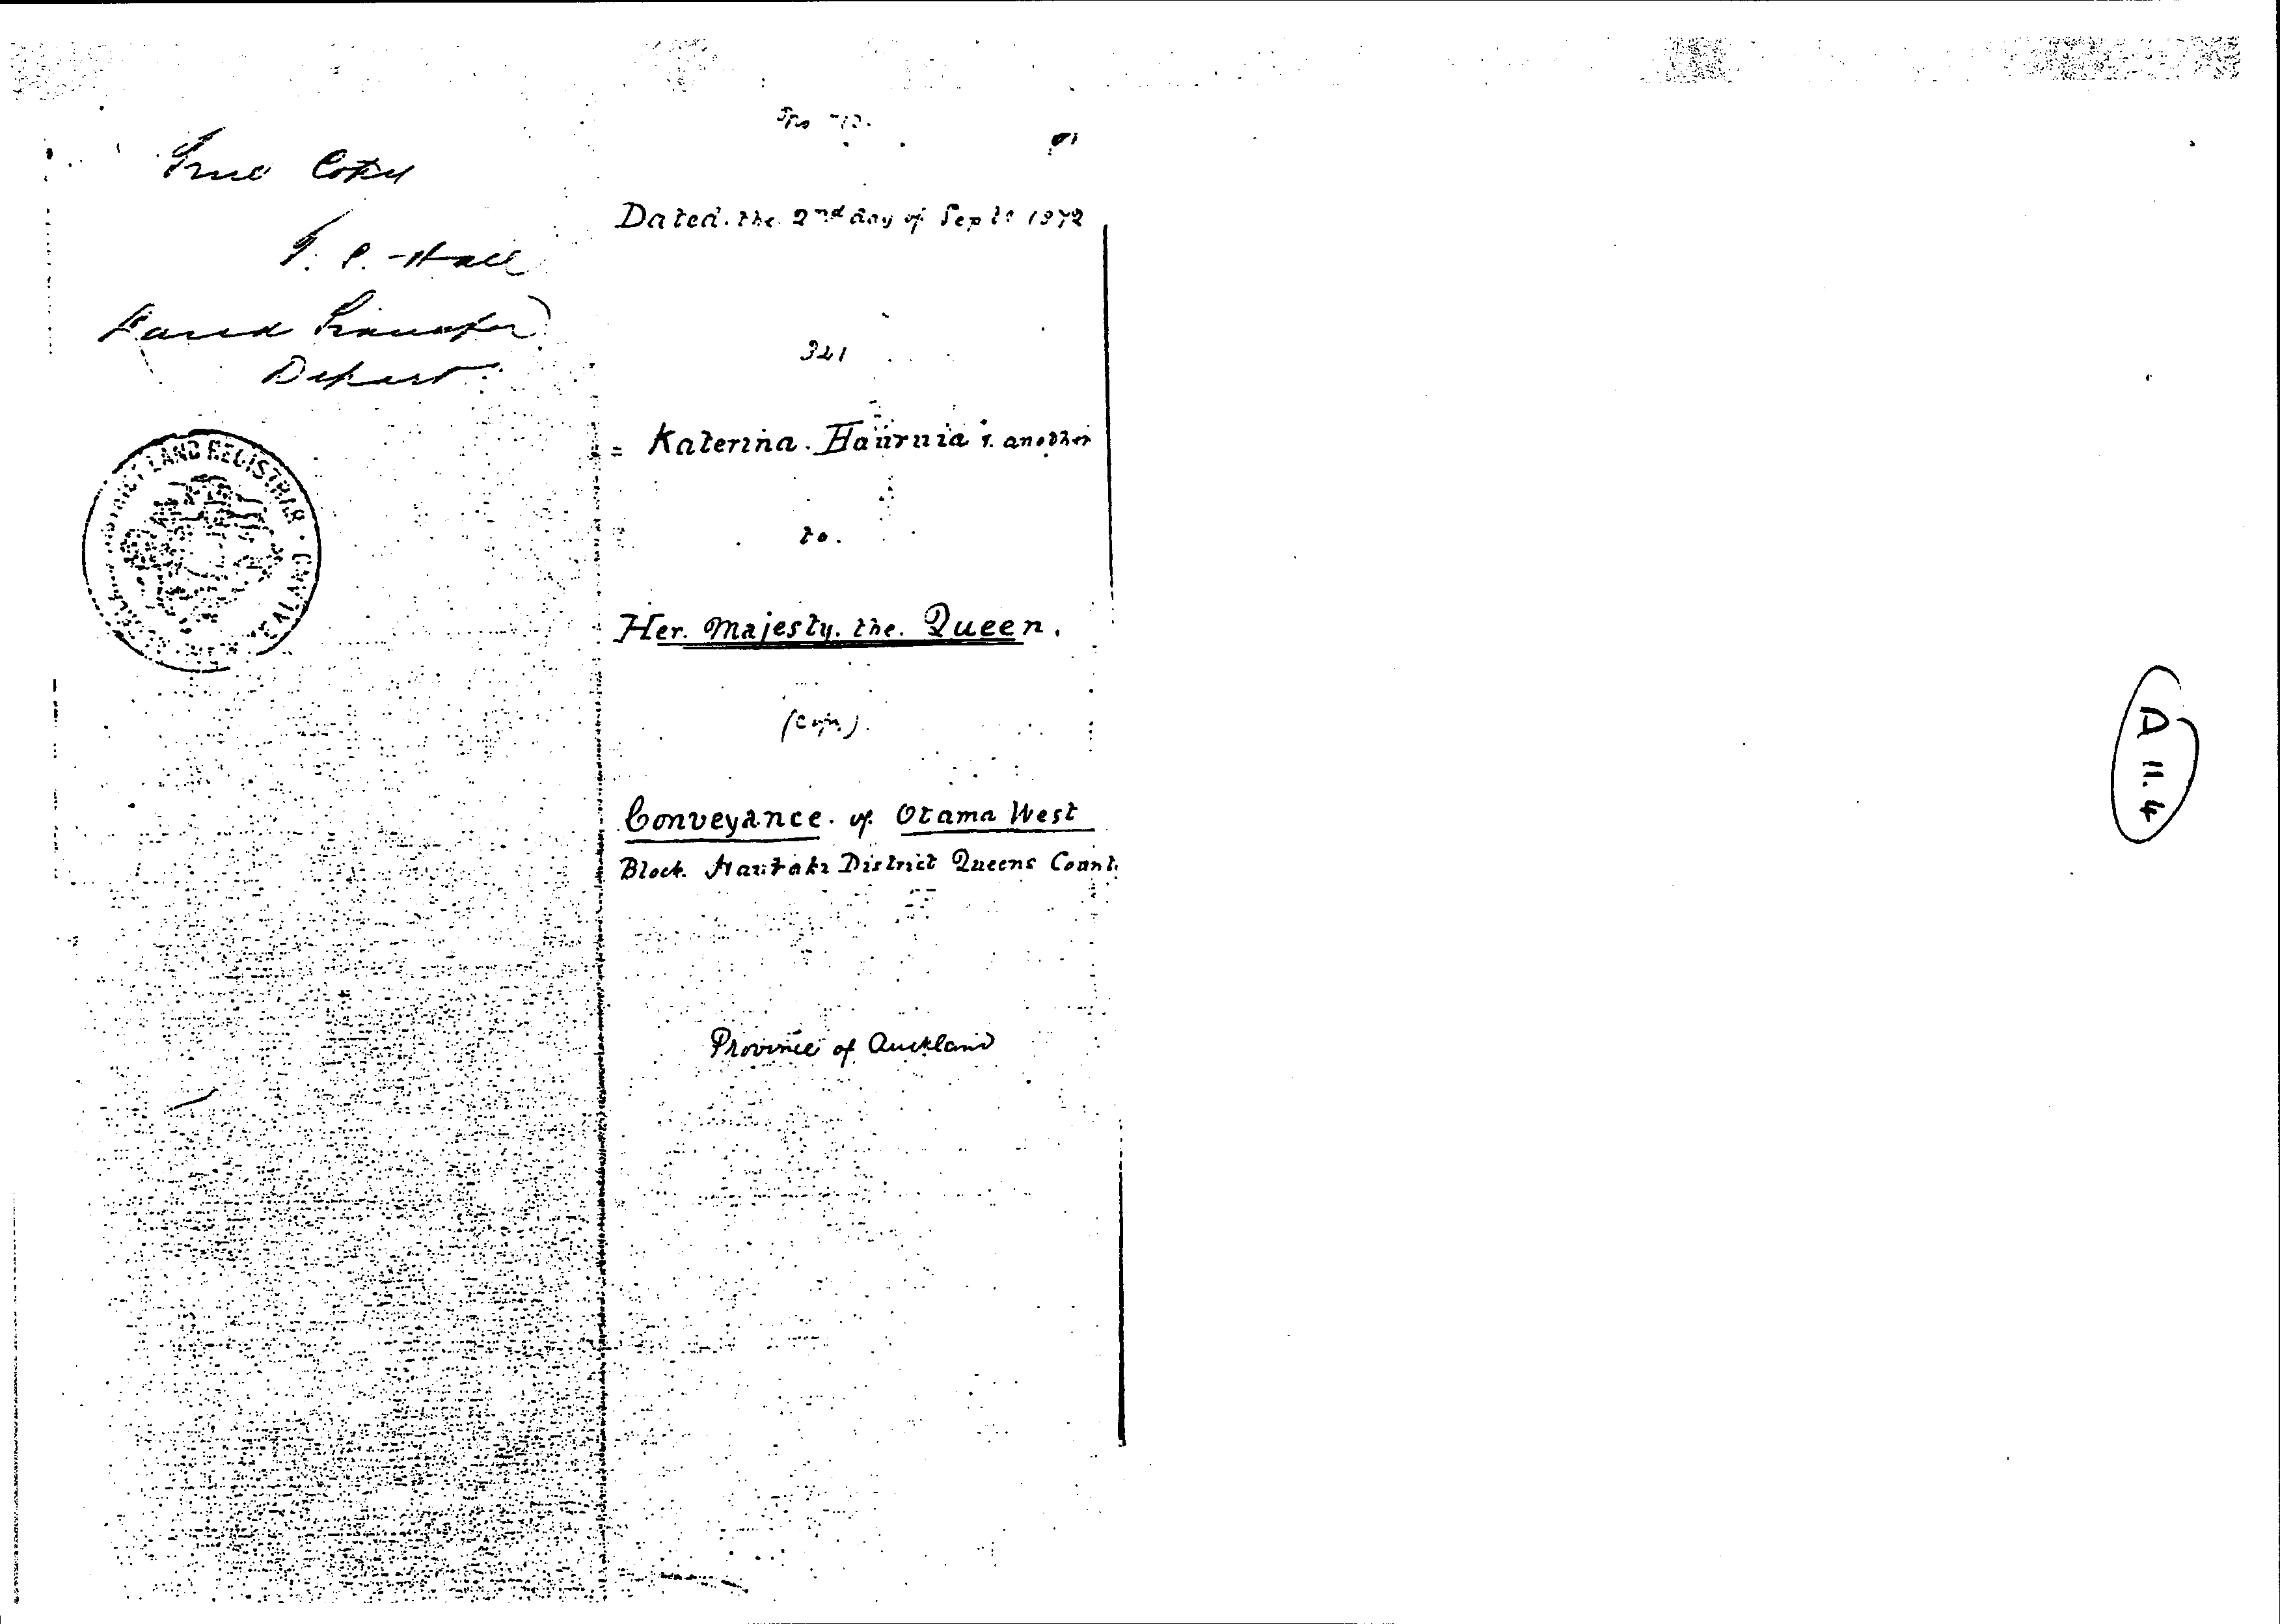 True Copy
T. P. Hall
Land Transfer
Depart
DISTRICT LAND REGISTRAR
Dated. the. 2nd day of Sept. 1872
321
Katerina. Hauruia & another
to.
Her. Majesty. the. Queen.
(Copy).
Conveyance. of Otama West
Block. District Queens
Province of Auckland
D 11.4